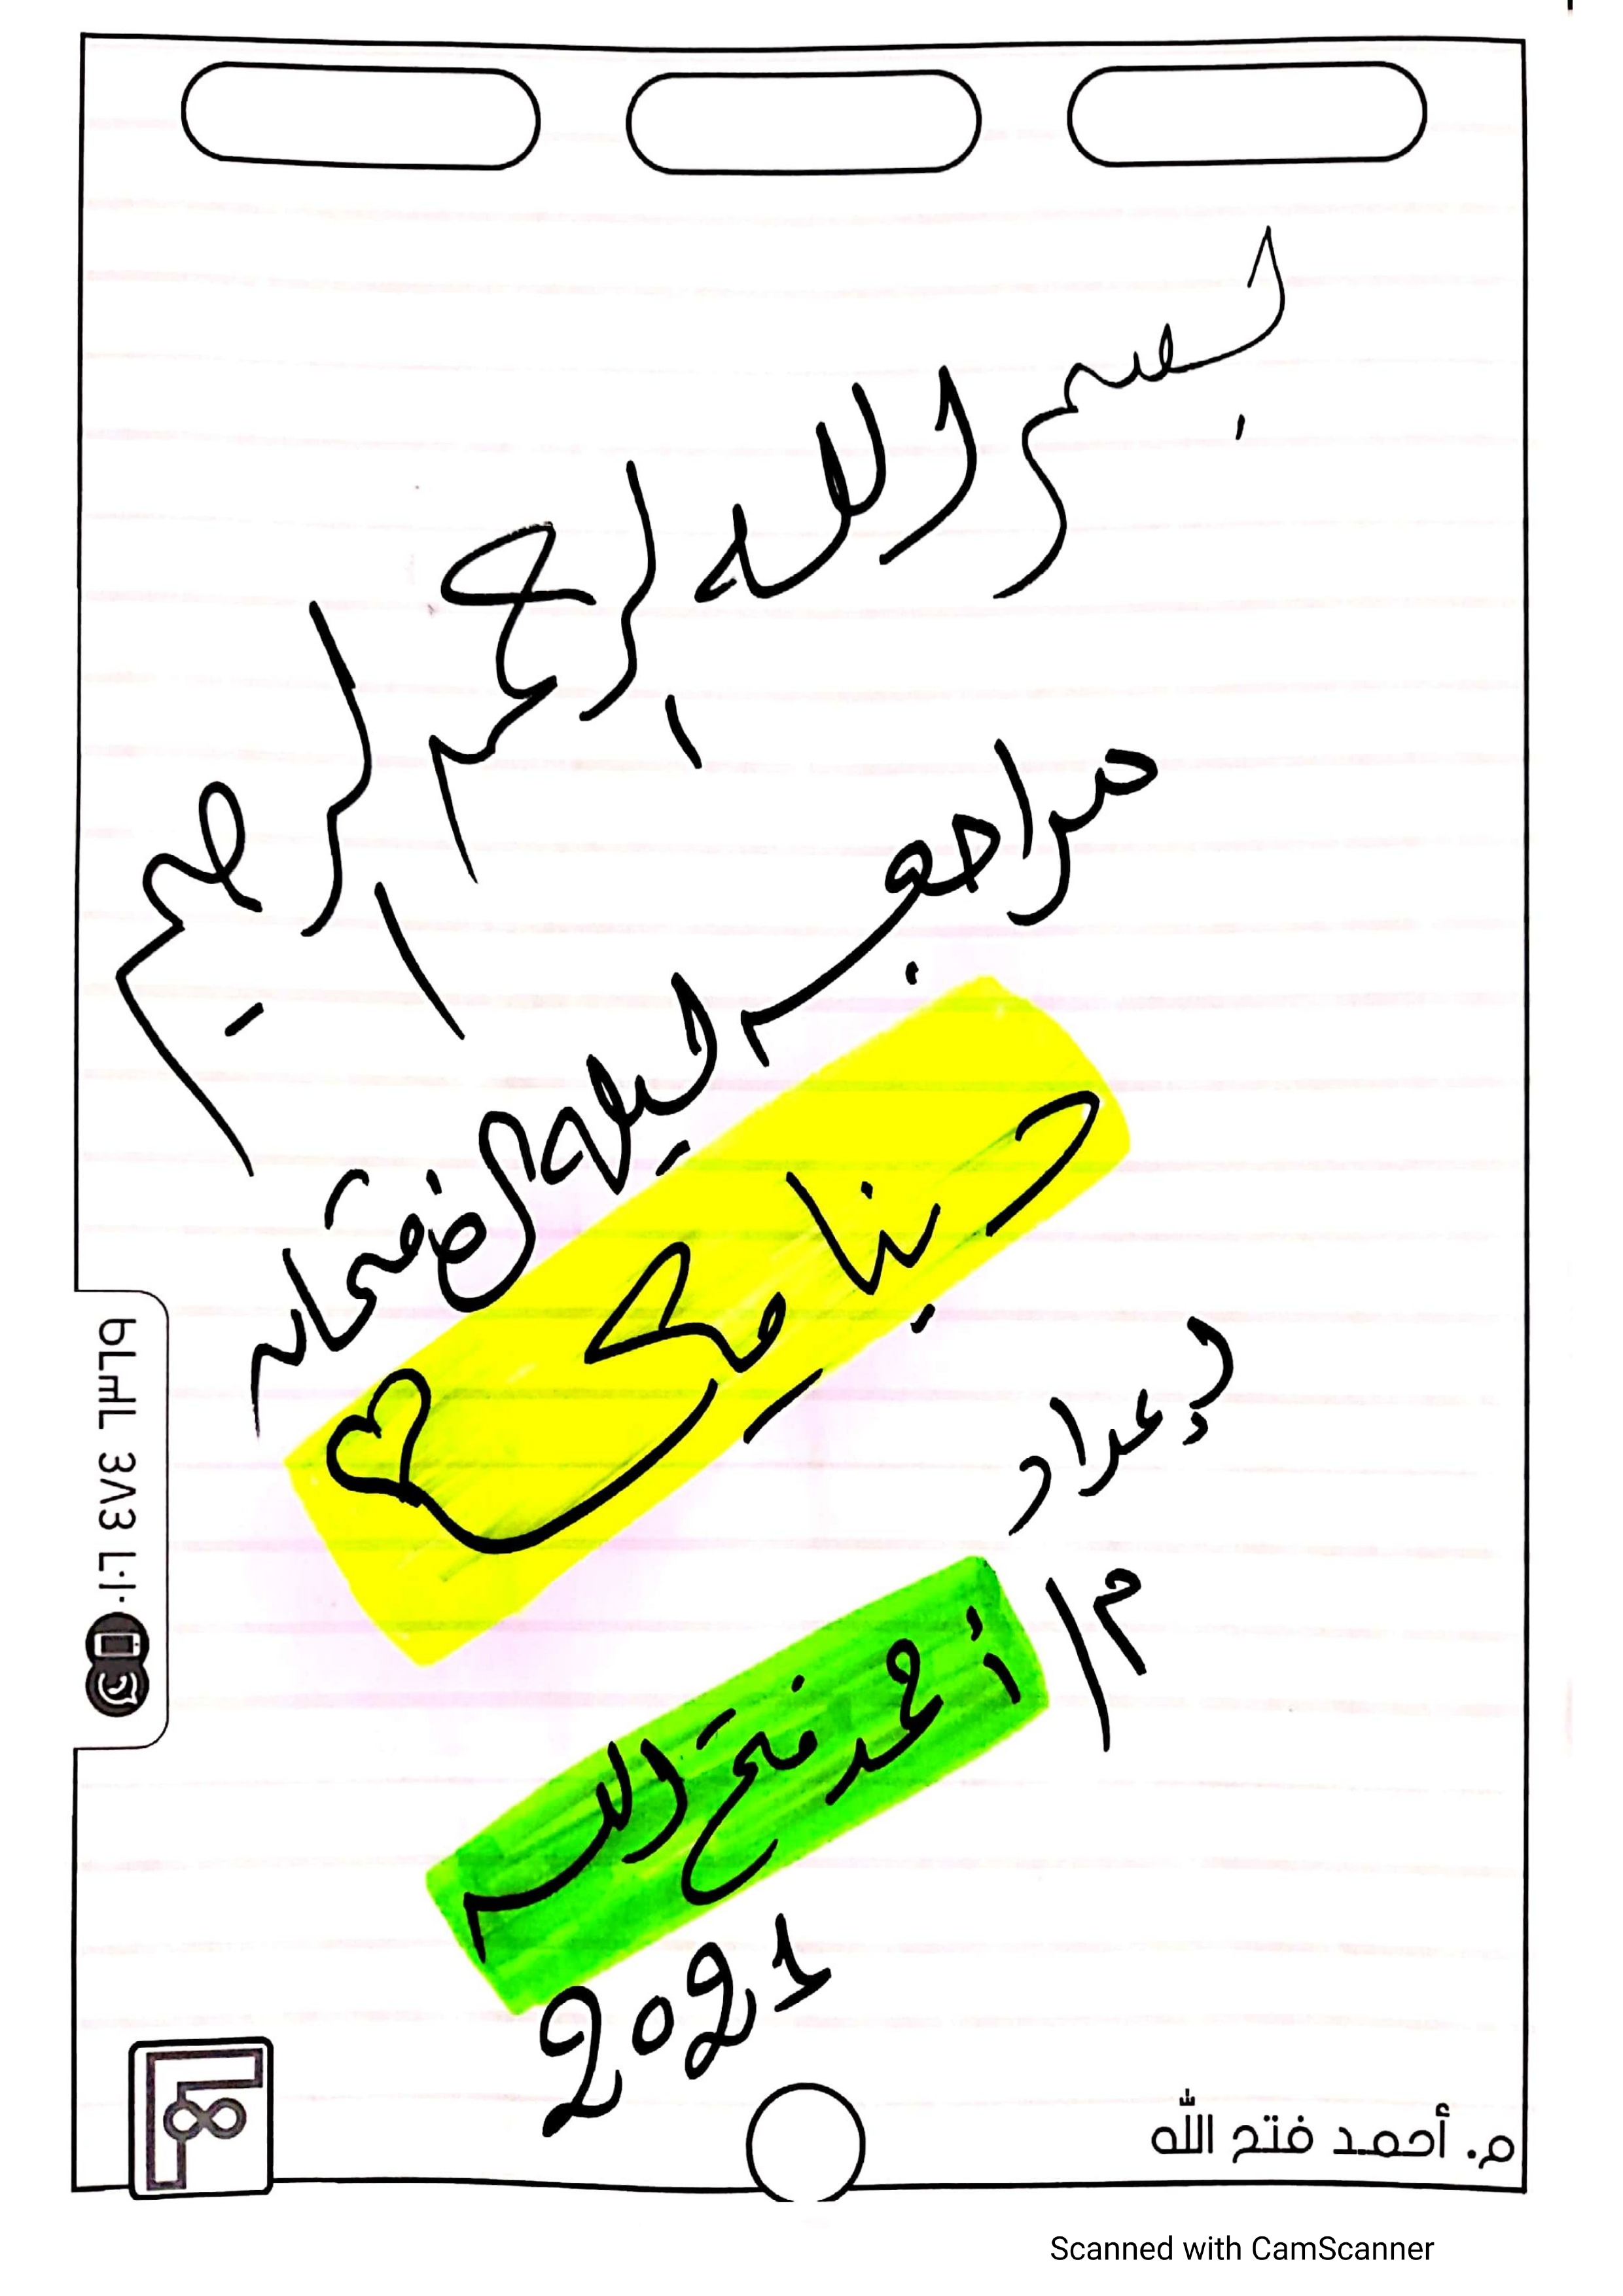 بسم الله الرحمن الرحيم
مراجعه ليله الامتحان
ديناميكا
إعداد
م/ أحمد فتح الله
2021
م. أحمد فتح الله
Scanned with CamScanner